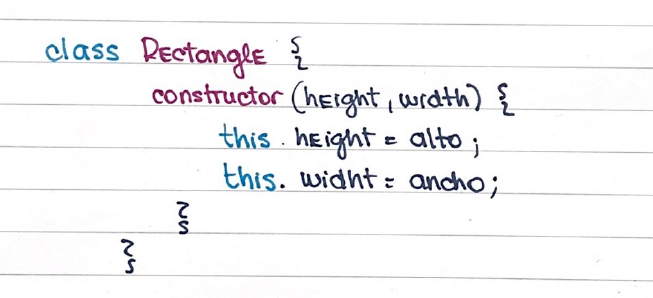 class Rectangle {
constructor (height, width) {
this. height = alto;
this. widht = ancho;
}
}